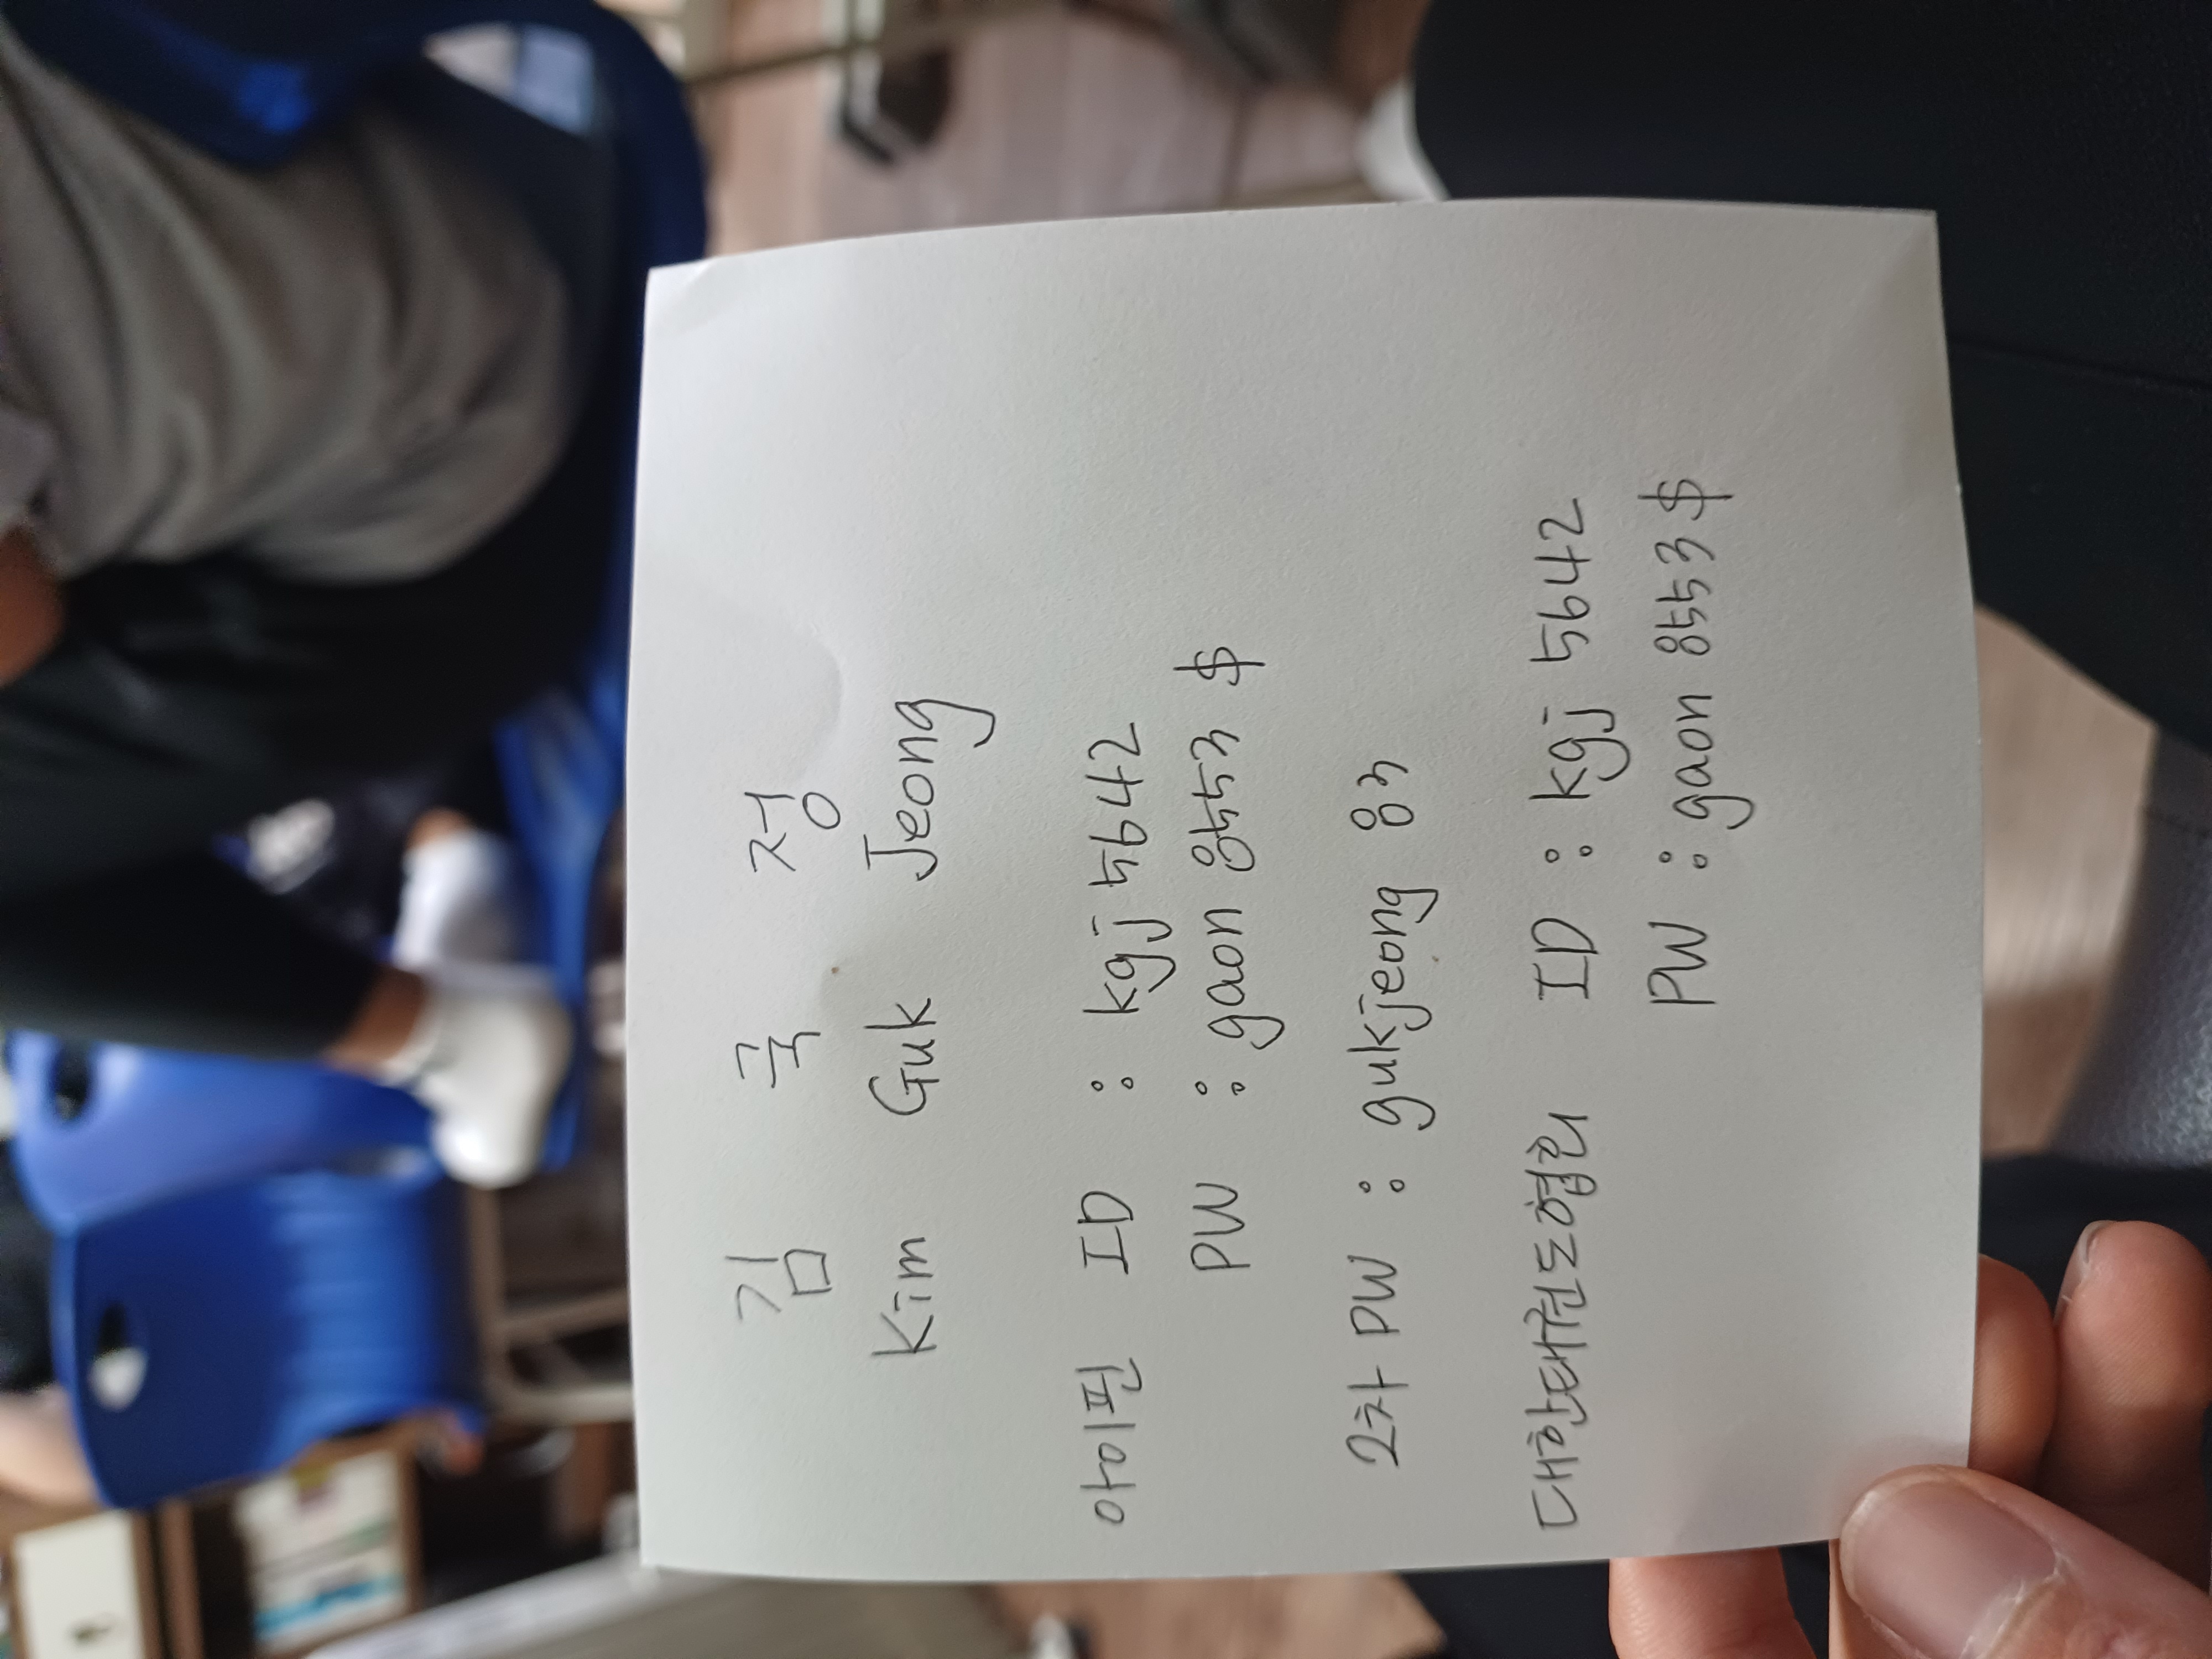 김 국 정
Kim Guk Jeong
아이핀 ID : kgj 5642
PW : gaon 8553 $
2차 PW : gukjeong 83
대한태권도협회 ID : kgj 5642
PW : gaon 8553 $